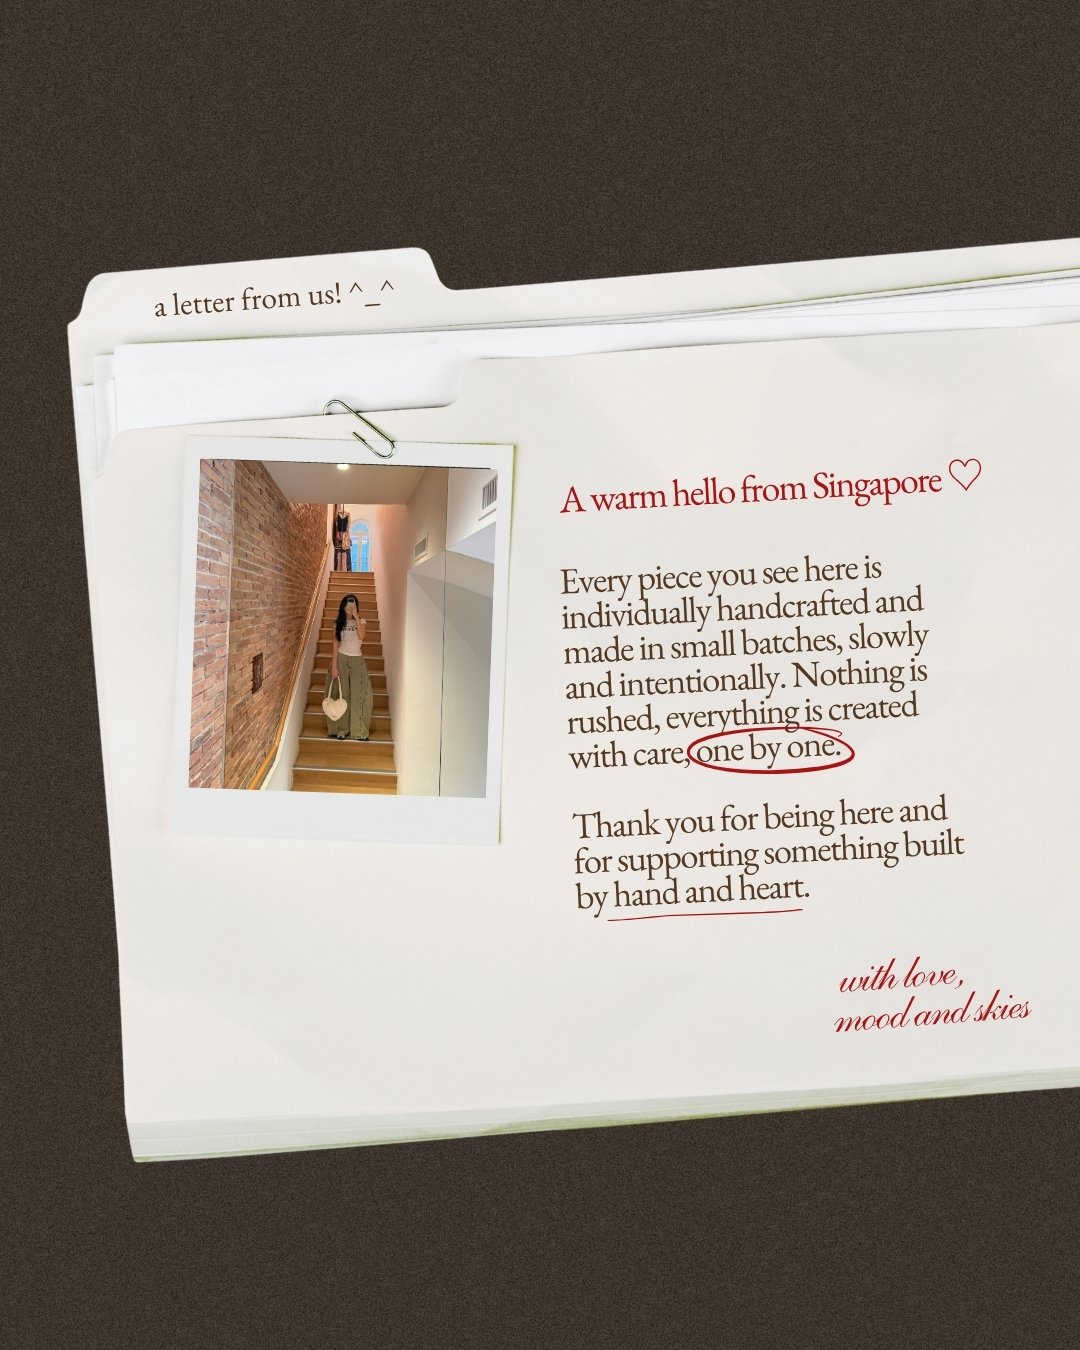 a letter from us! ^_^
A warm hello from Singapore ♡
Every piece you see here is
individually handcrafted and
made in small batches, slowly
and intentionally. Nothing is
rushed, everything is created
with care, one by one.
Thank you for being here and
for supporting something built
by hand and heart.
with love,
mood and skies